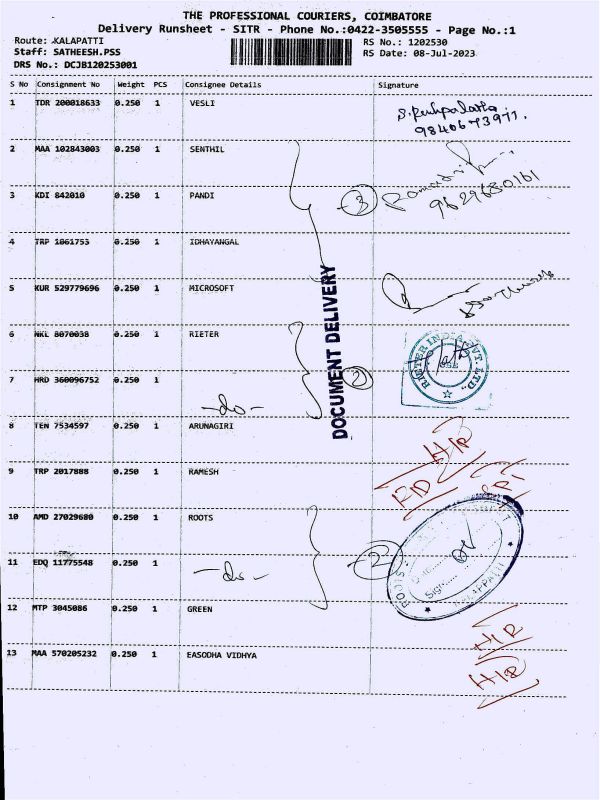 THE PROFESSIONAL COURIERS, COIMBATORE
Delivery Runsheet - SITR - Phone No.:0422-3505555 - Page No.:1
Route: KALAPATTI RS No.: 1202530
Staff: SATHEESH.PSS RS Date: 08-Jul-2023
DRS No.: DCJB120253001
S No Consignment No Weight PCS Consignee Details Signature
1 TDR 200018633 0.250 1 VESLI
9840673971.
2 MAA 102843003 0.250 1 SENTHIL
3 KDI 842010 0.250 1 PANDI -3 9629680161
4 TRP 1861753 0.250 1 IDHAYANGAL
5 KUR 529779696 0.250 1 MICROSOFT
DOCUMENT DELIVERY
6 NKL 8070038 0.250 1 RIETER
RIETER INDIA PVT. LTD.,
7 HRD 360096752 0.250 1 -do- 2
8 TEN 7534597 0.250 1 ARUNAGIRI H/R
9 TRP 2017888 0.250 1 RAMESH
10 AMD 27029680 0.250 1 ROOTS
11 EDQ 11775548 0.250 1 -do- -2
Date
Sign
12 MTP 3045086 0.250 1 GREEN H/R
13 MAA 570205232 0.250 1 EASODHA VIDHYA H/R